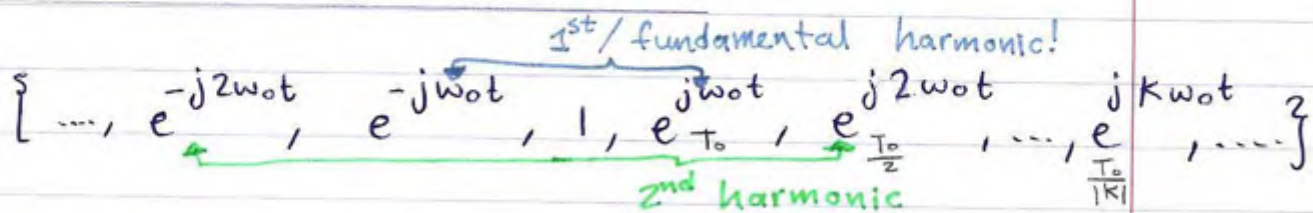 1st/fundamental harmonic!
{ ...., e^{-j2ω₀t}, e^{-jω₀t}, 1, e^{jω₀t} T₀, e^{j2ω₀t} T₀/2, ..., e^{jkω₀t} T₀/|K|, ..... }
2nd harmonic